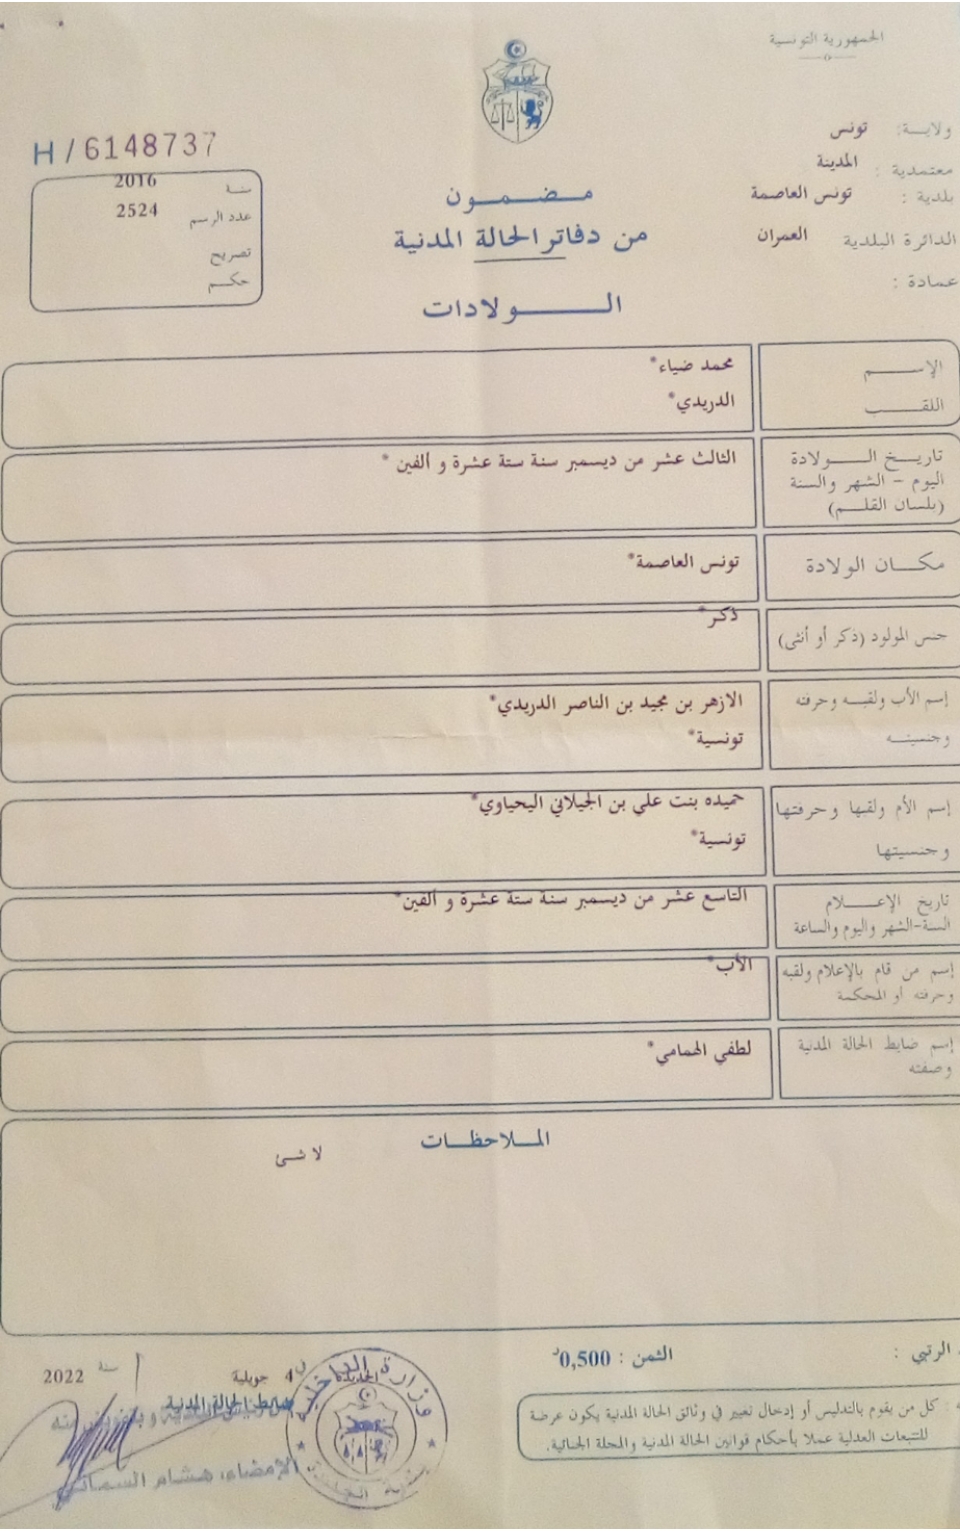 الجمهورية التونسية
ولاية: تونس
معتمدية : المدينة
بلدية : تونس العاصمة
الدائرة البلدية العمران
عمادة :
H/6148737
سنة 2016
عدد الرسم 2524
تصريح
حكم
مضمون
من دفاتر الحالة المدنية
الولادات
الإسم محمد ضياء*
اللقب الدريدي*
تاريخ الولادة الثالث عشر من ديسمبر سنة ستة عشرة و ألفين *
اليوم - الشهر والسنة
(بلسان القلم)
مكان الولادة تونس العاصمة*
جنس المولود (ذكر أو أنثى) ذكر*
إسم الأب ولقبه وحرفته الازهر بن مجيد بن الناصر الدريدي*
وجنسيته تونسية*
إسم الأم ولقبها وحرفتها حميده بنت علي بن الجيلاني اليحياوي*
وجنسيتها تونسية*
تاريخ الإعلام التاسع عشر من ديسمبر سنة ستة عشرة و ألفين*
السنة-الشهر واليوم والساعة
إسم من قام بالإعلام ولقبه الأب*
وحرفته أو المحكمة
إسم ضابط الحالة المدنية لطفي الهمامي*
وصفته
الملاحظات
لا شئ
الرتبي :
الثمن : 0,500د
: كل من يقوم بالتدليس أو إدخال تغيير في وثائق الحالة المدنية يكون عرضة
للتتبعات العدلية عملا بأحكام قوانين الحالة المدنية والمجلة الجنائية.
الجديدة في 4 جويلية سنة 2022
ضابط الحالة المدنية
الإمضاء، هشام
وزارة الداخلية